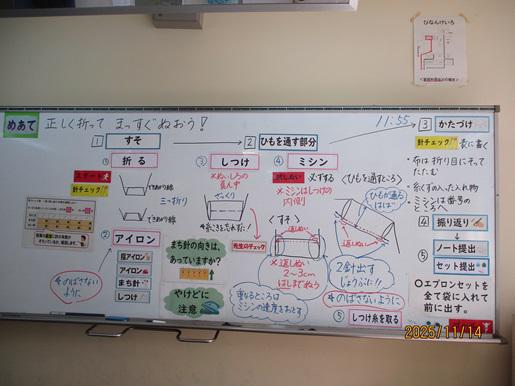 ひなんけいろ
めあて 正しく折って まっすぐぬおう!
11:55
1 すそ
2 ひもを通す部分
3 かたづけ
① 折る
スタート
針チェック
できあがり線
三つ折り
できあがり線
② アイロン
アイロン
まち針
しつけ
③ しつけ
※ぬいしろの
真ん中
ざっくり
先生のチェック
まち針の向きは、
あっていますか?
やけどに
注意
④ ミシン
試しぬい 必ずする
※ミシンはしつけの
内側
〈すそ〉
返しぬい
※返しぬい
2~3cm
はしまでぬう
重なるところは
ミシンの速度をおとす
〈ひもを通すところ〉
ひもが通る
はば
返しぬい
2針出す
じょうぶに!!
のばさないように
⑤ しつけ糸を取る
針チェック 表に書く
布は折り目にそって
たたむ
糸くずの入った入れ物
ミシンは番号の
ところへ
4 振り返り
5 ノート提出
セット提出
〇エプロンセットを
全て袋に入れて
前に出す。
2025/11/14